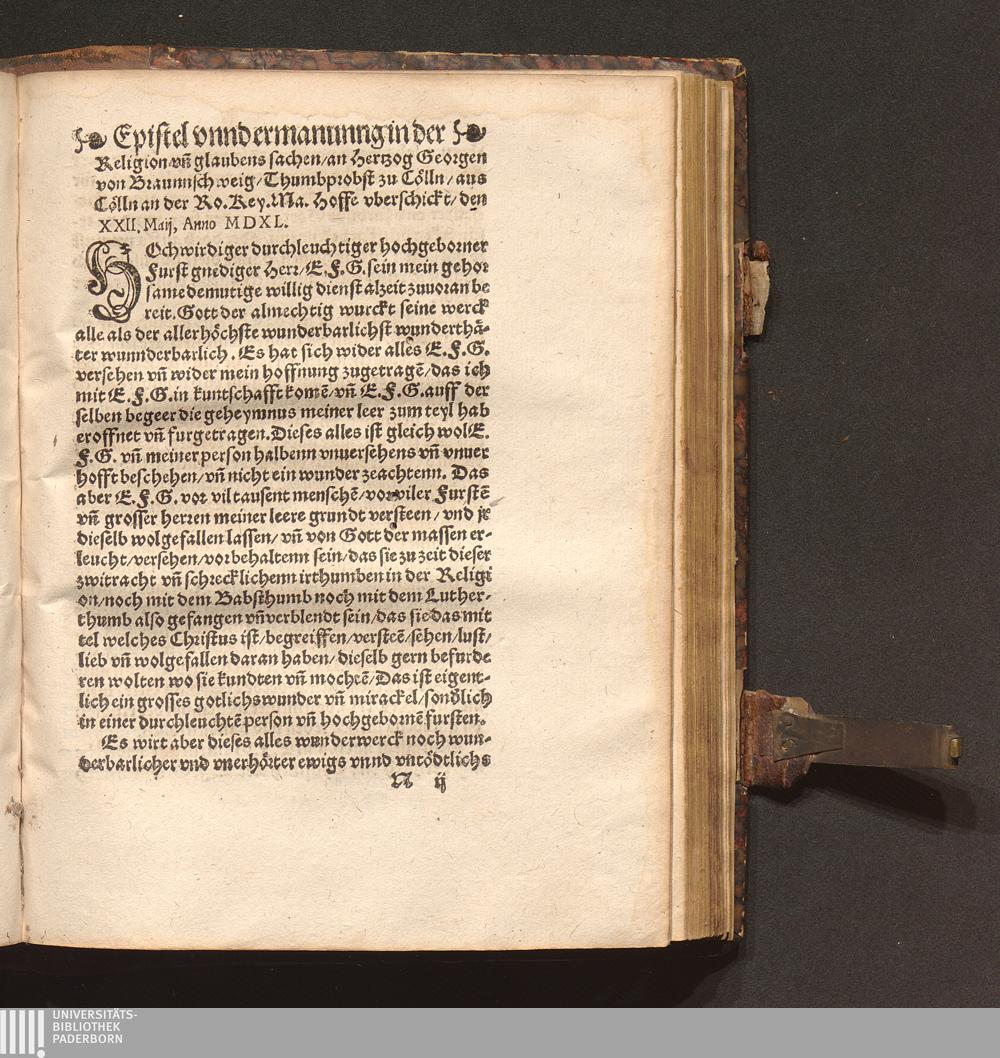 Epistel vnnd ermanunng in der
Religion vñ glaubens sachen/an Hertzog Georgen
von Braunnschweig/Thumbprobst zu Cölln/aus
Cölln an der Ro.Key.Ma. Hoffe vberschickt/den
XXII. Maij, Anno MDXL.
HOchwirdiger durchleuchtiger hochgeborner
Furst gnediger Herr/E.F.G.sein mein gehor
same demutige willig dienst alzeit zuuoran be
reit. Gott der almechtig wurckt seine werck
alle als der allerhöchste wunderbarlichst wunderthä-
ter wunnderbarlich. Es hat sich wider alles E.F.G.
versehen vñ wider mein hoffnung zugetragē/das ich
mit E.F.G.in kuntschafft komē/vñ E.F.G.auff der
selben begeer die geheymnus meiner leer zum teyl hab
eroffnet vñ furgetragen. Dieses alles ist gleich wol E.
F.G. vñ meiner person halbenn vnuersehens vñ vnuer
hofft beschehen/vñ nicht ein wunder zeachtenn. Das
aber E.F.G. vor vil tausent menschē/vor viler Furstē
vñ grosser herren meiner leere grundt versteen/vnd jr
dieselb wolgefallen lassen/vñ von Gott der massen er-
leucht/versehen/vorbehaltenn sein/das sie zu zeit dieser
zwitracht vñ schrecklichenn irthumben in der Religi
on/noch mit dem Babsthumb noch mit dem Luther-
thumb also gefangen vñ verblendt sein/das sie das mit
tel welches Christus ist/begreiffen/versteē/sehen/lust/
lieb vñ wolgefallen daran haben/dieselb gern befurde
ren wolten wo sie kundten vñ mochtē/Das ist eigent-
lich ein grosses gotlichs wunder vñ mirackel/sonďlich
in einer durchleuchtē person vñ hochgebornē fursten.
Es wirt aber dieses alles wunderwerck noch wun-
derbarlicher vnd vnerhörter ewigs vnnd vntödtlichs
N ij
UNIVERSITÄTS-
BIBLIOTHEK
PADERBORN